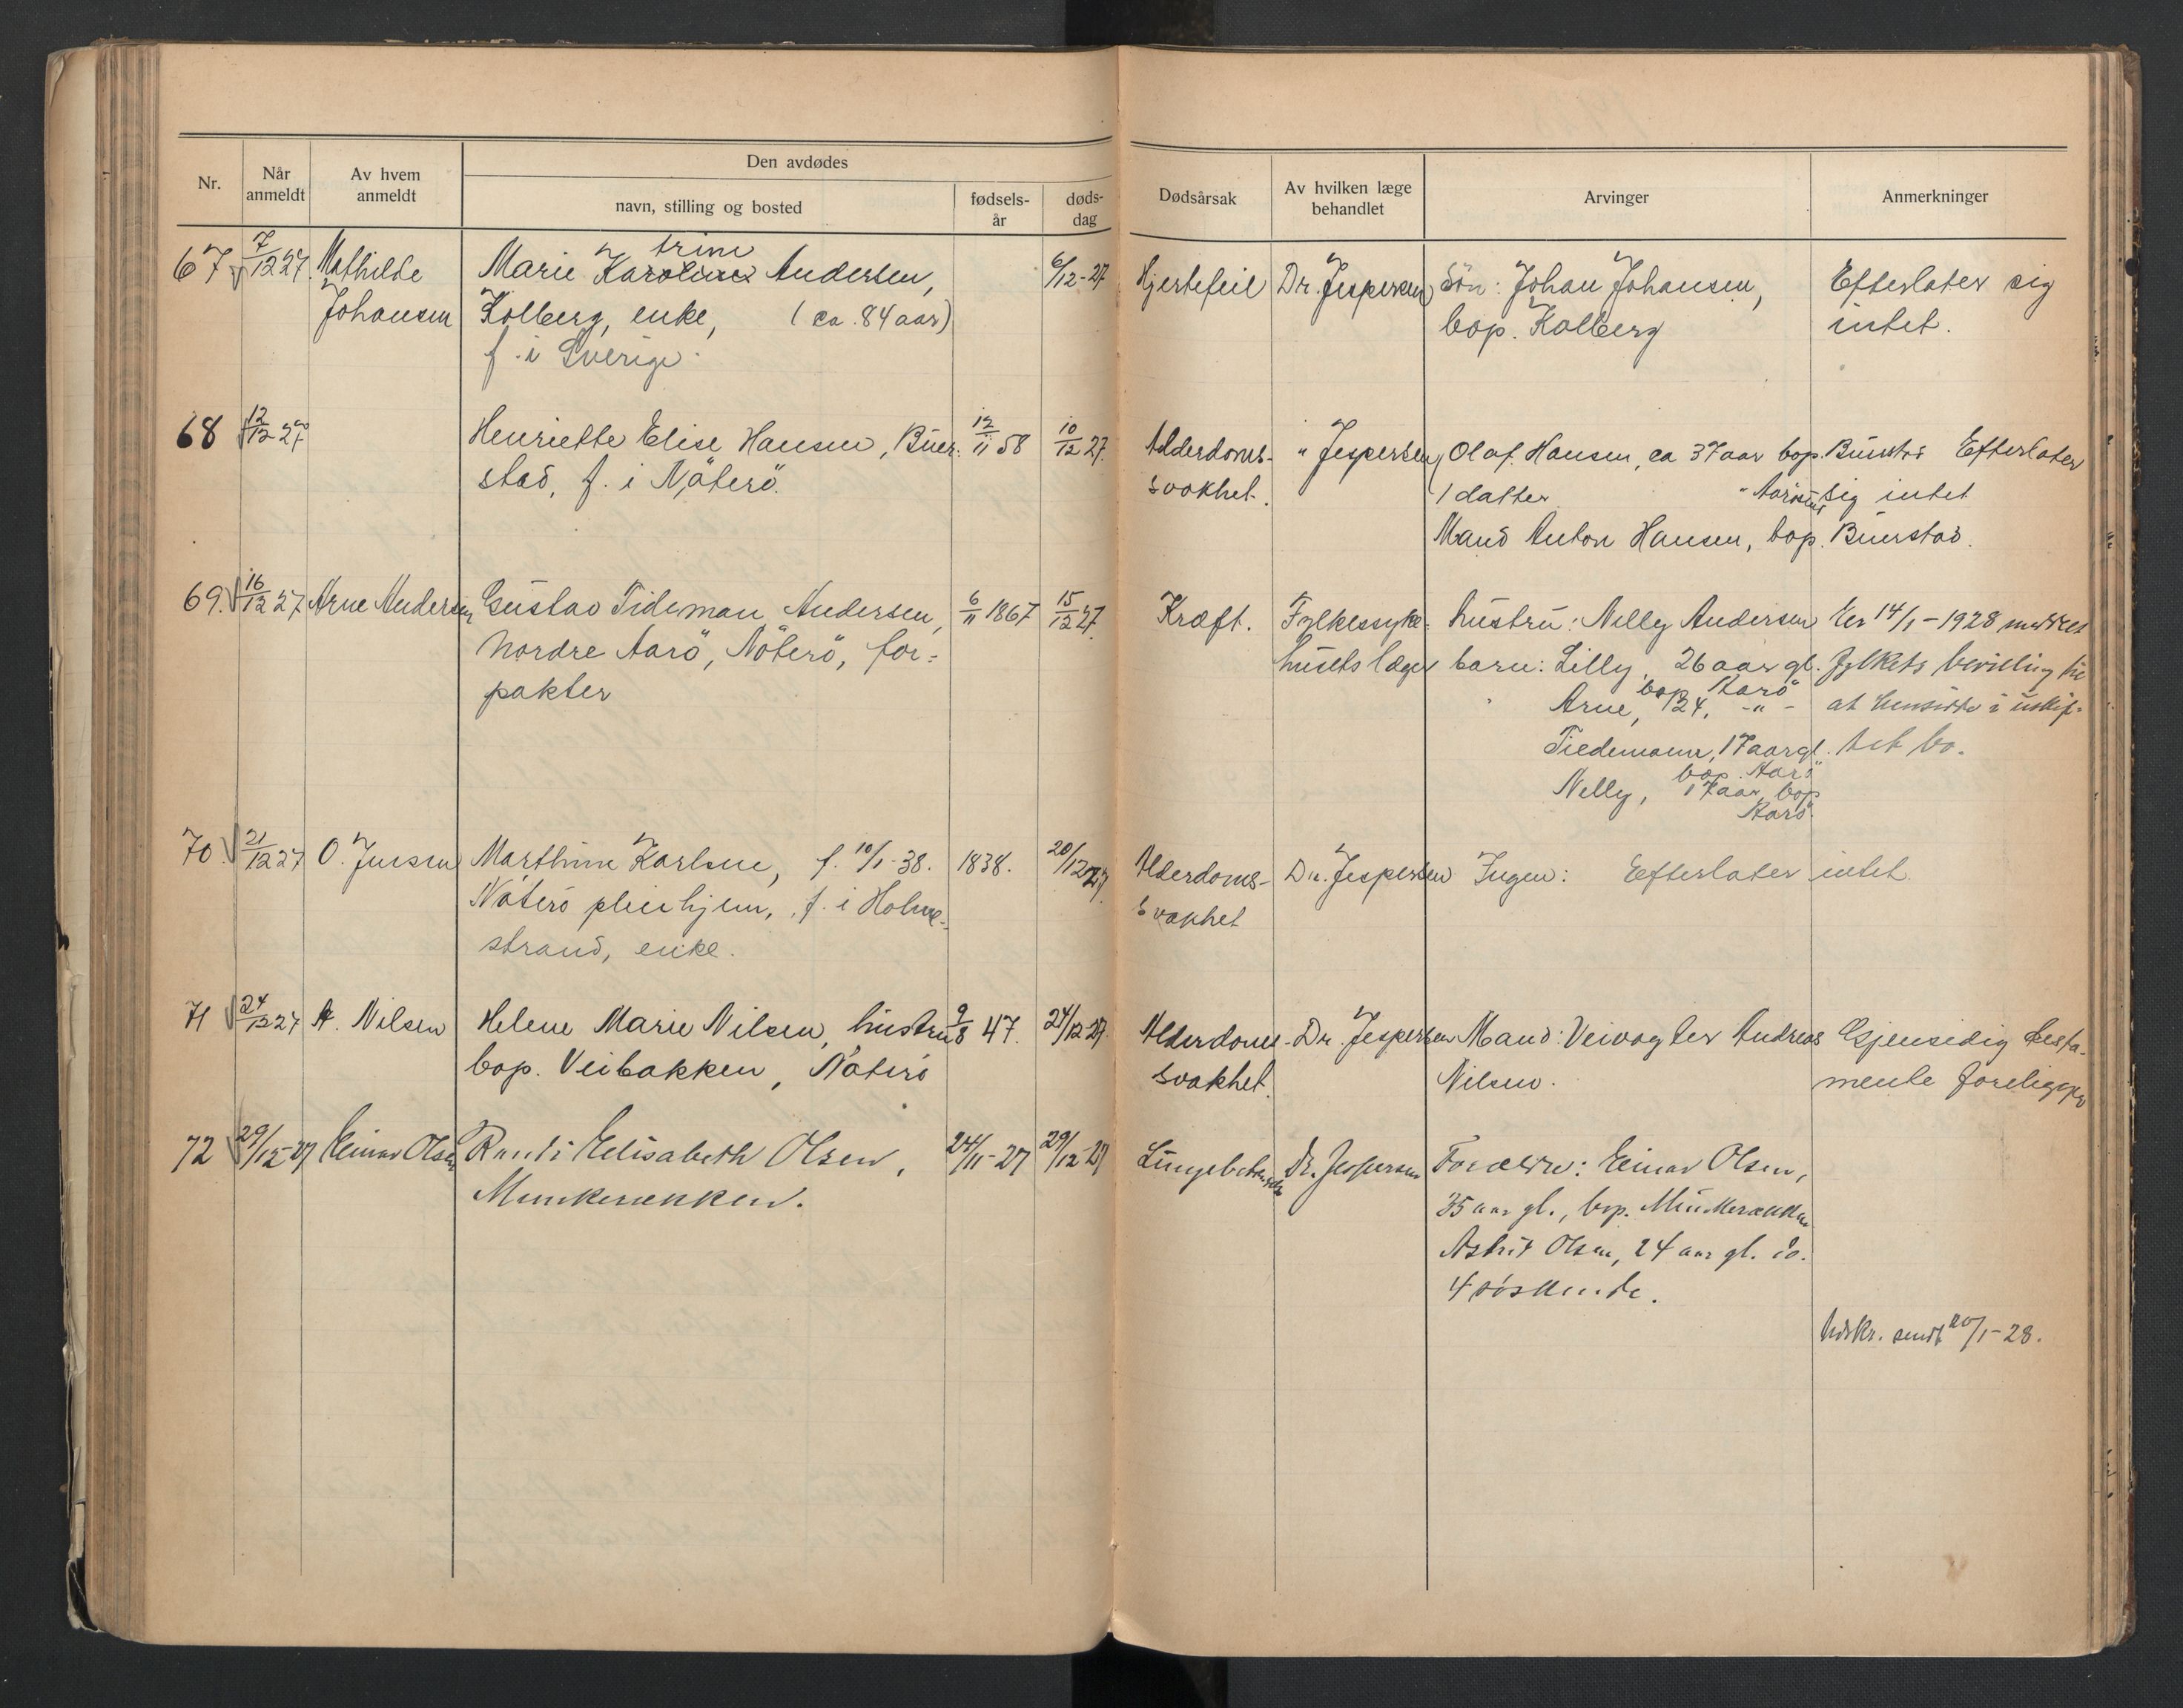 Nr.
Når anmeldt
Av hvem anmeldt
Den avdødes
navn, stilling og bosted
fødsels- år
døds- dag
Dødsårsak
Av hvilken læge behandlet
Arvinger
Anmerkninger
67 7/12 27. Mathilde Marie Karoline trine Andersen, 6/12-27 Hjertefeil Dr. Jespersen Sön: Johan Johansen, Efterlater sig
Johansen Kolberg, enke, (ca. 84 aar) bop. Kolberg intet.
f. i Sverige.
68 12/12 27 Henriette Elise Hansen, Buer- 12/11 58 10/12 27. Alderdoms- " Jespersen Olaf Hansen, ca 37 aar bop. Buerstad Efterlater
stad, f. i Nöterö. svakhet. 1 datter " Aarösund sig intet
Mand Anton Hansen, bop. Buerstad.
69. 16/12 27 Arne Andersen Gustav Tideman Andersen, 6/11 1867 15/12 27. Kræft. Fylkessyke- hustru: Nelly Andersen Ved 14/1-1928 meddelt
Nordre Aarö, Nöterö, for- husets læger barn: Lilly, 26 aar gl. fylkets bevilling til
bop. Aarö
pakter Arne, 24, -"- at hensidde i uskif-
Tiedemann, 17 aar gl. tet bo.
bop. Aarö
Nelly, 17 aar, bop
Aarö.
70. 21/12 27 O. Jensen Marthine Karlsen, f. 10/1-38. 1838. 20/12 27. Alderdoms- Dr. Jespersen Ingen: Efterlater intet.
Nöterö pleiehjem, f. i Holme- svakhet
strand, enke.
71 24/12 27 A. Nilsen Helene Marie Nilsen, hustru 9/8 47. 24/12 27. Alderdoms- Dr. Jespersen Mand: Veivogter Andreas Gjensidig testa-
bop. Veibakken, Nöterö svakhet. Nilsen. mente foreligger
72 29/12-27 Einar Olsen Randi Elisabeth Olsen, 24/11-27 29/12-27 Lungebetændelse Dr. Jespersen Foreldre: Einar Olsen,
Munkerekken. 35 aar gl., bop. Munkerekken
Astrid Olsen, 24 aar gl. do.
4 söskende.
Utskr. sendt 20/1-28.